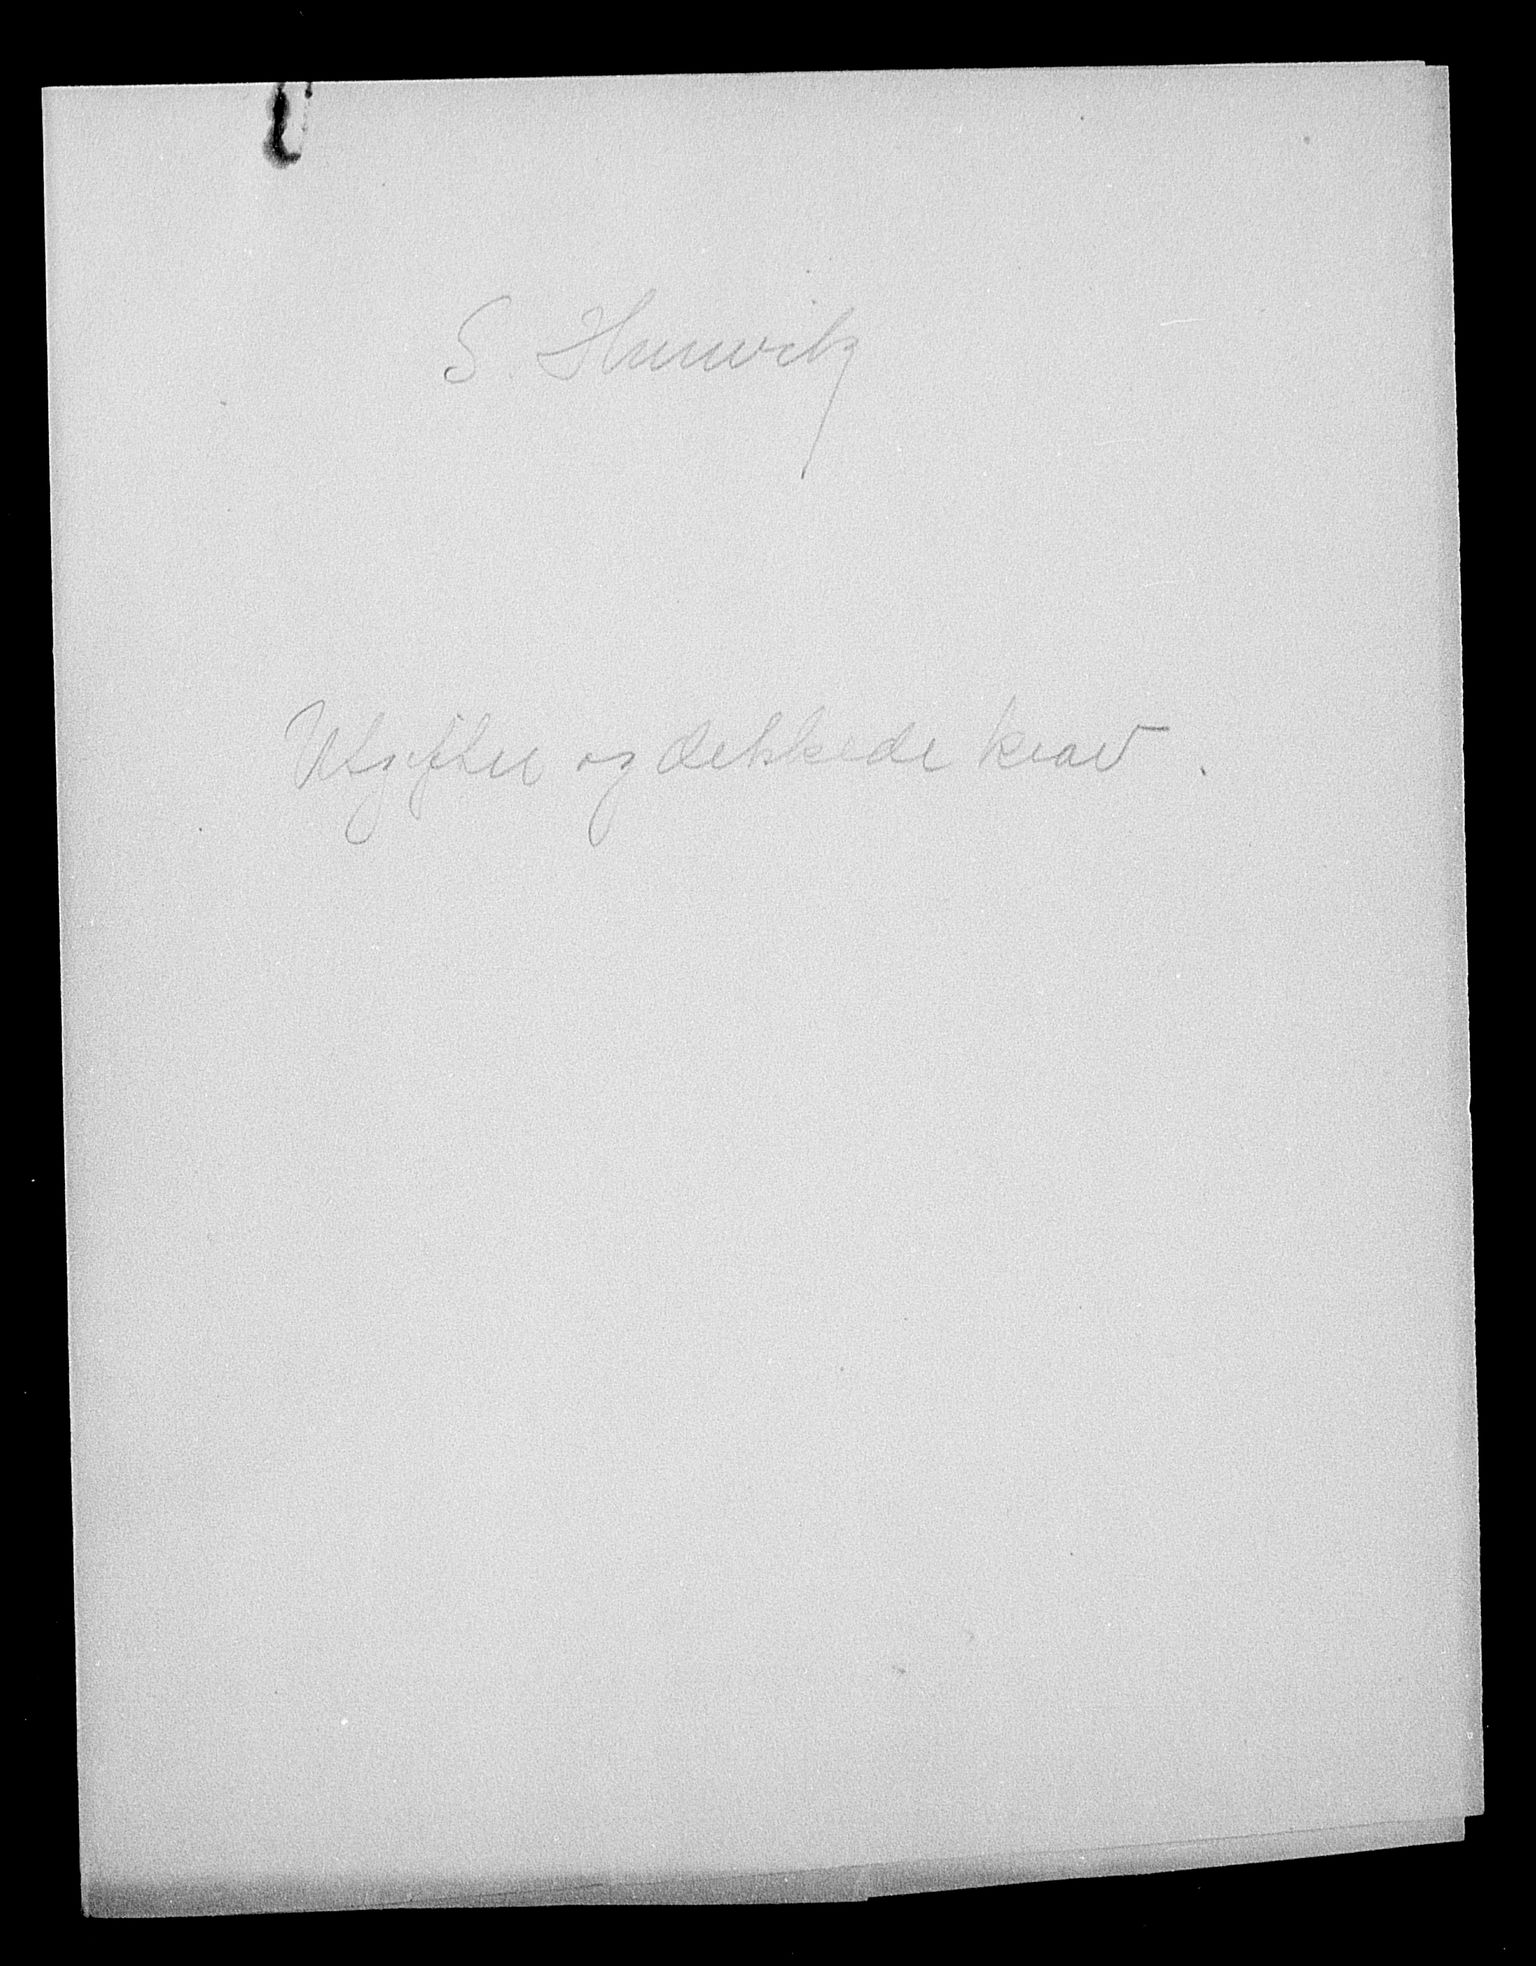 S. Hurwitz
Utgifter og dekkede krav.